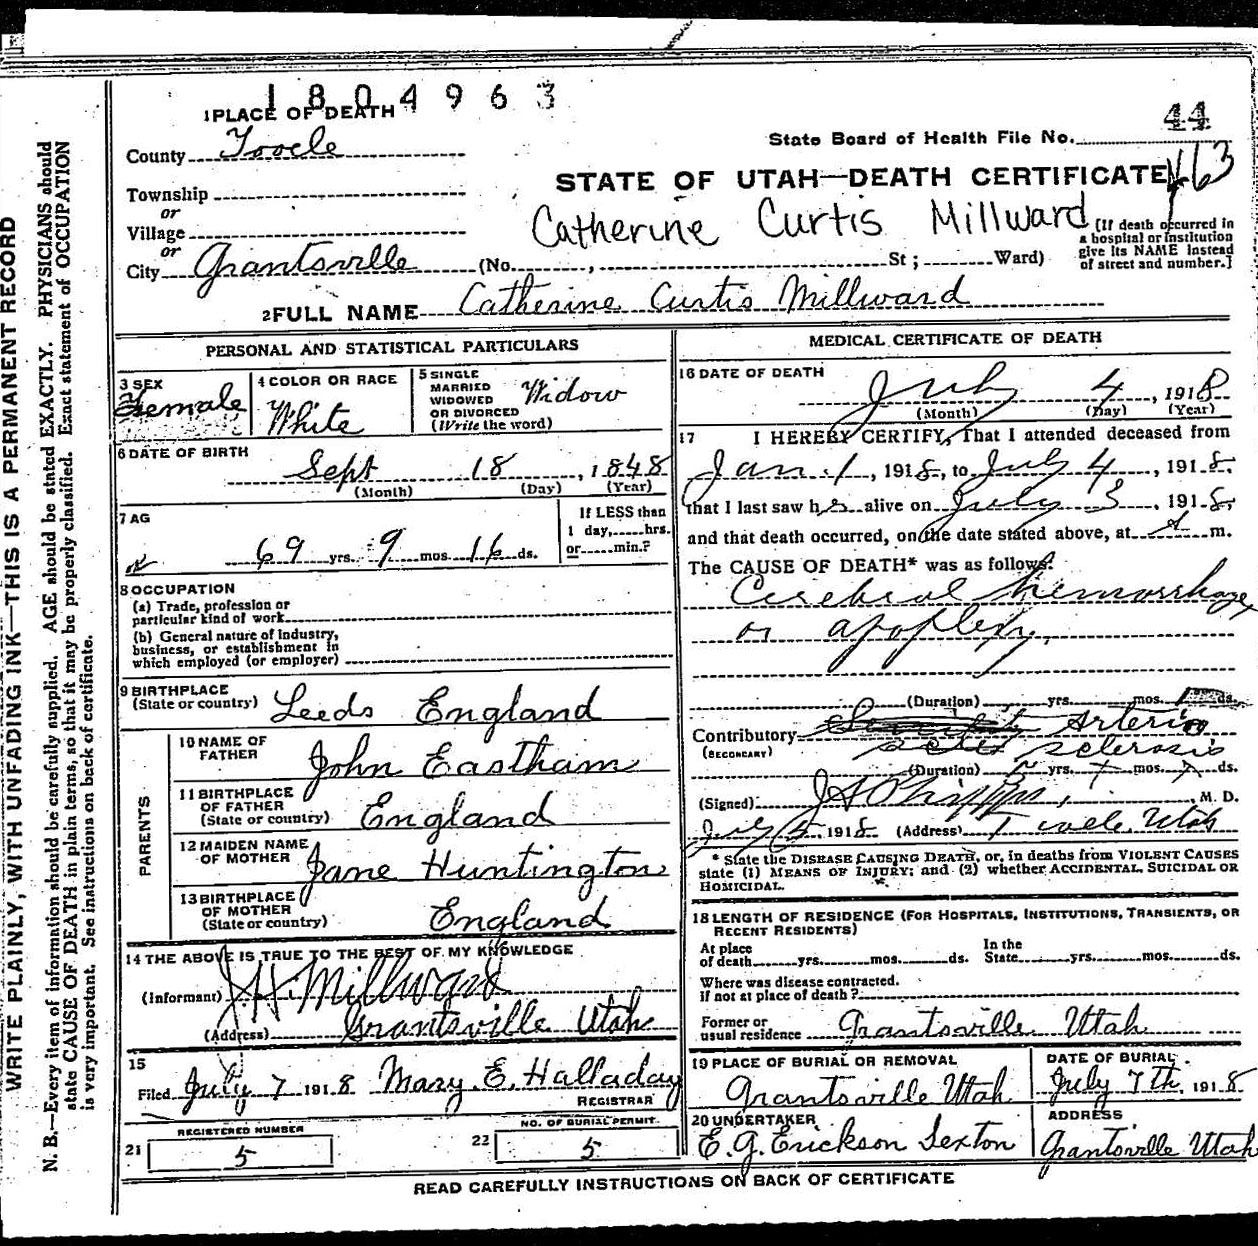 1804963
1 PLACE OF DEATH
44
State Board of Health File No.
County Tooele
STATE OF UTAH—DEATH CERTIFICATE
163
Township
or
Village
Catherine Curtis Millward
[If death occurred in
a hospital or institution
give its NAME instead
of street and number.]
or
City Grantsville (No. , St ; Ward)
2 FULL NAME Catherine Curtis Millward
PERSONAL AND STATISTICAL PARTICULARS
3 SEX
Female
4 COLOR OR RACE
White
5 SINGLE
MARRIED
WIDOWED
OR DIVORCED
(Write the word)
Widow
6 DATE OF BIRTH
Sept 18, 1848
(Month) (Day) (Year)
7 AG
69 yrs. 9 mos. 16 ds.
If LESS than
1 day, hrs.
or min.?
8 OCCUPATION
(a) Trade, profession or
particular kind of work
(b) General nature of industry,
business, or establishment in
which employed (or employer)
9 BIRTHPLACE
(State or country) Leeds England
PARENTS
10 NAME OF
FATHER John Eastham
11 BIRTHPLACE
OF FATHER
(State or country) England
12 MAIDEN NAME
OF MOTHER Jane Huntington
13 BIRTHPLACE
OF MOTHER
(State or country) England
14 THE ABOVE IS TRUE TO THE BEST OF MY KNOWLEDGE
(Informant) Millward
(Address) Grantsville Utah
15
Filed July 7 1918 Mary E. Halladay
REGISTRAR
REGISTERED NUMBER
21 5
NO. OF BURIAL PERMIT.
22 5
MEDICAL CERTIFICATE OF DEATH
16 DATE OF DEATH
July 4, 1918
(Month) (Day) (Year)
17 I HEREBY CERTIFY, That I attended deceased from
Jan. 1, 1918, to July 4, 1918,
that I last saw h alive on July 3, 1918,
and that death occurred, on the date stated above, at m.
The CAUSE OF DEATH* was as follows:
Cerebral hemorrhage
or apoplexy.
(Duration) yrs. mos. ds.
Contributory Arterio
(SECONDARY) sclerosis
(Duration) yrs. mos. ds.
(Signed) Phipps, M. D.
July 5, 1918 (Address) Tooele, Utah
* State the DISEASE CAUSING DEATH, or, in deaths from VIOLENT CAUSES
state (1) MEANS OF INJURY; and (2) whether ACCIDENTAL, SUICIDAL OR
HOMICIDAL.
18 LENGTH OF RESIDENCE (FOR HOSPITALS, INSTITUTIONS, TRANSIENTS, OR
RECENT RESIDENTS)
At place
of death yrs. mos. ds.
In the
State yrs. mos. ds.
Where was disease contracted.
if not at place of death?
Former or
usual residence Grantsville Utah
19 PLACE OF BURIAL OR REMOVAL
Grantsville Utah
DATE OF BURIAL
July 7th, 1918
20 UNDERTAKER
E. G. Erickson Sexton
ADDRESS
Grantsville Utah
READ CAREFULLY INSTRUCTIONS ON BACK OF CERTIFICATE
WRITE PLAINLY, WITH UNFADING INK—THIS IS A PERMANENT RECORD
N. B.—Every item of information should be carefully supplied. AGE should be stated EXACTLY. PHYSICIANS should
state CAUSE OF DEATH in plain terms, so that it may be properly classified. Exact statement of OCCUPATION
is very important. See instructions on back of certificate.